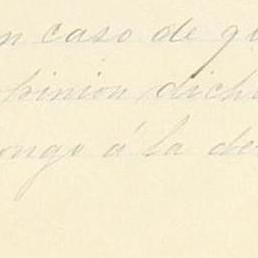 n caso de qu
opinion, dich
ongo á la de